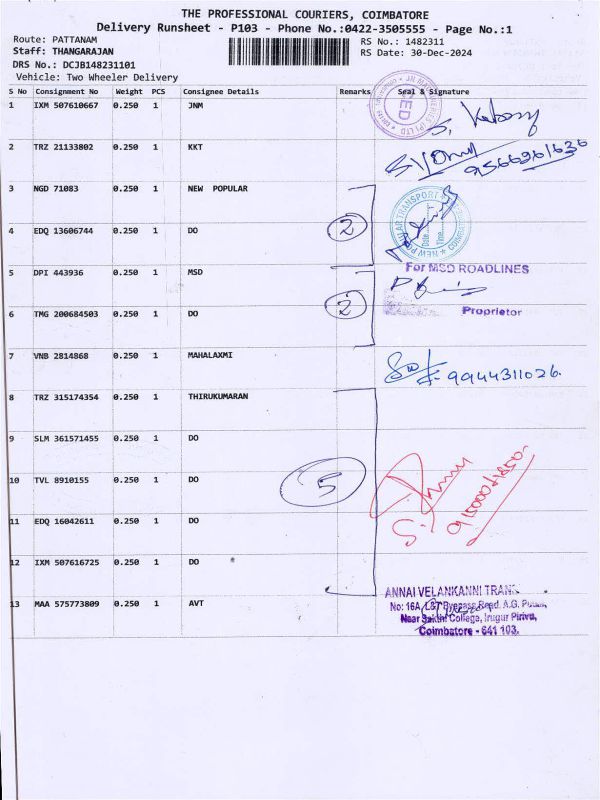 THE PROFESSIONAL COURIERS, COIMBATORE
Delivery Runsheet - P103 - Phone No.:0422-3505555 - Page No.:1
Route: PATTANAM RS No.: 1482311
Staff: THANGARAJAN RS Date: 30-Dec-2024
DRS No.: DCJB148231101
Vehicle: Two Wheeler Delivery
S No Consignment No Weight PCS Consignee Details Remarks Seal & Signature
1 IXM 507610667 0.250 1 JNM
2 TRZ 21133802 0.250 1 KKT 9566961636
3 NGD 71083 0.250 1 NEW POPULAR
NEW POPULAR TRANSPORT COIMBATORE
Date
Time
4 EDQ 13606744 0.250 1 DO 2
5 DPI 443936 0.250 1 MSD For MSD ROADLINES
6 TMG 200684503 0.250 1 DO 2 Proprietor
7 VNB 2814868 0.250 1 MAHALAXMI 9944311026.
8 TRZ 315174354 0.250 1 THIRUKUMARAN
9 SLM 361571455 0.250 1 DO
10 TVL 8910155 0.250 1 DO 5
11 EDQ 16042611 0.250 1 DO
12 IXM 507616725 0.250 1 DO
13 MAA 575773809 0.250 1 AVT
ANNAI VELANKANNI TRANS
No: 16A, L&T Byepass Road, A.G. Pudur,
Near Sakthi College, Irugur Pirivu,
Coimbatore - 641 103.